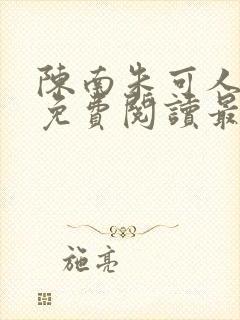 陳南朱可人
免費閱讀最
施亮